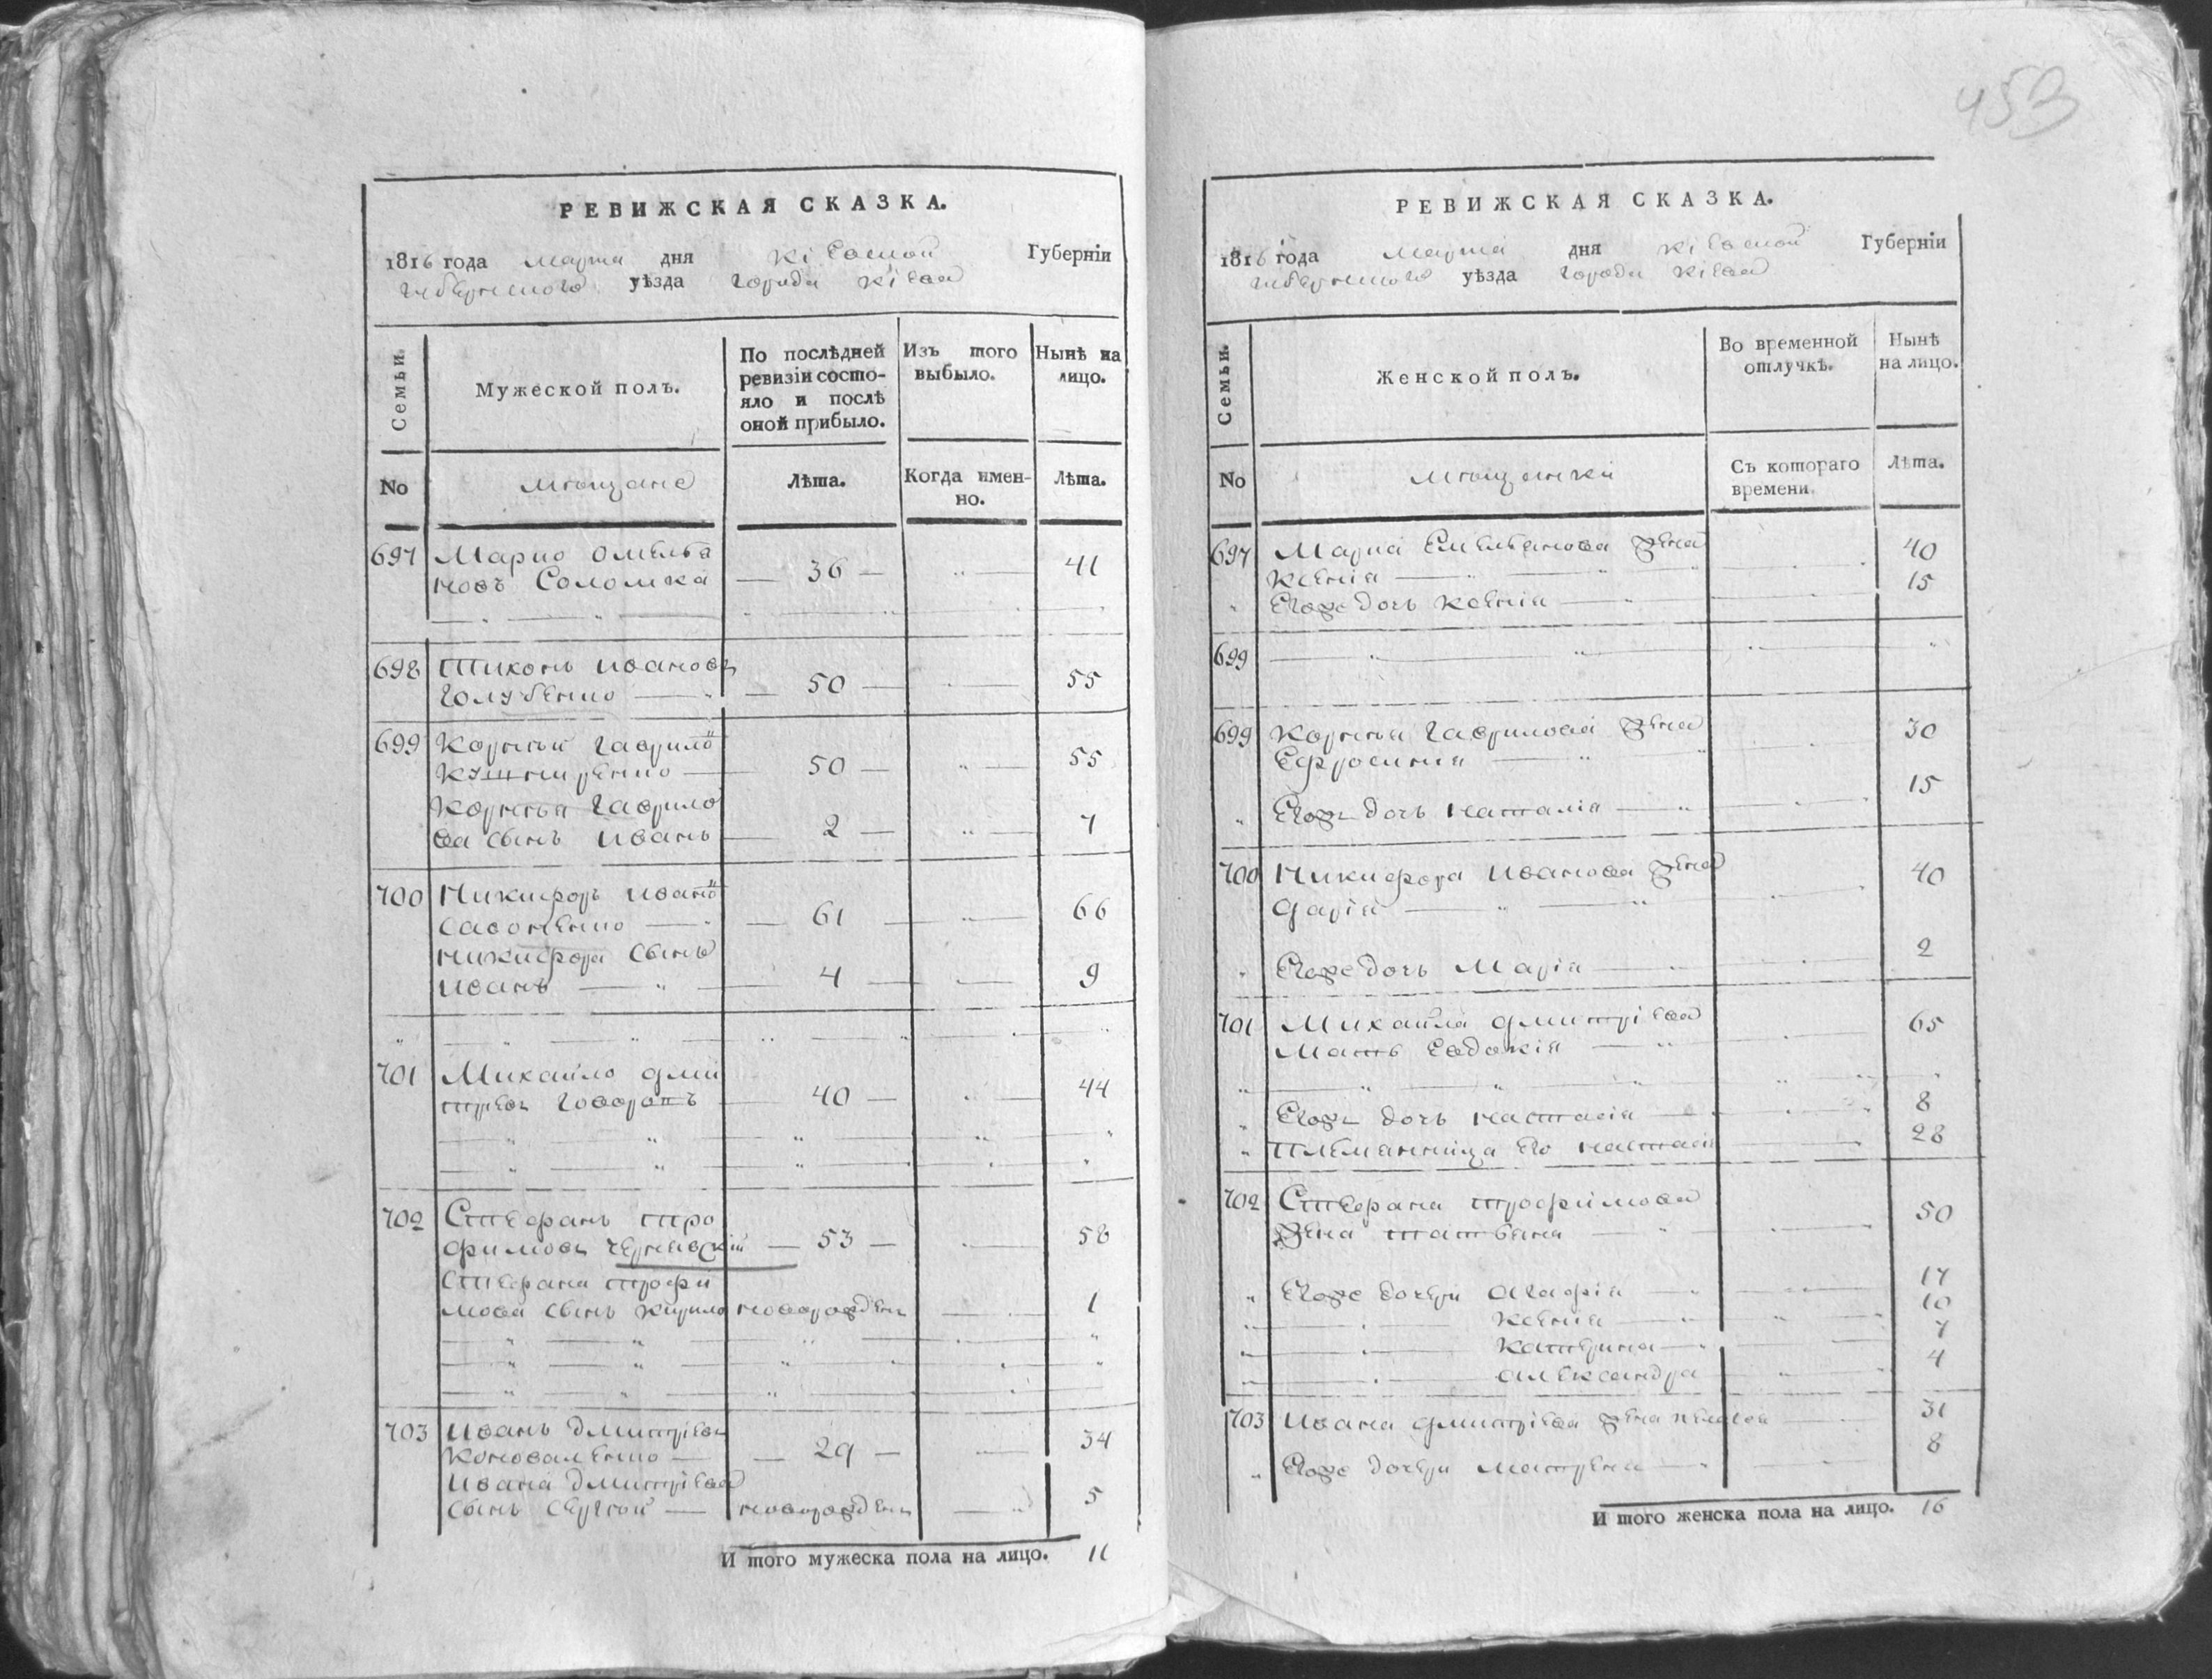 РЕВИЖСКАЯ СКАЗКА.
1816 года марта дня Кіевской Губерніи
уѣзда города Кіева
Семьи.
Мужеской полъ.
По послѣдней ревизіи состо-
яло и послѣ оной прибыло.
Изъ того выбыло.
Нынѣ на лицо.
No
мѣщане
Лѣта.
Когда имен-
но.
Лѣта.
697 Марко Омелья
новъ Соломка — 36 — 41
698 Тихонъ Ивановъ
Голубенко — 50 — 55
699 Корнѣй Гаврило
Кушниренко — 50 — 55
Корнѣя Гаврило
ва сынъ Иванъ — 2 — 7
700 Никифоръ Ивано
Савоненко — 61 — 66
Никифора сынъ
Иванъ — 4 — 9
701 Михайло Дми
тріевъ — 40 — 44
702 Стефанъ Тро
фимовъ Чернявскій — 53 — 58
Стефана Трофи
мова сынъ Кирило новорожденъ — 1
703 Иванъ Дмитріевъ
Коноваленко — 29 — 34
Ивана Дмитріева
сынъ Сергѣй — новорожденъ — 5
И того мужеска пола на лицо. 11
453
РЕВИЖСКАЯ СКАЗКА.
1816 года марта дня Кіевской Губерніи
уѣзда города Кіева
Семьи.
Женской полъ.
Во временной отлучкѣ.
Нынѣ на лицо.
No
мѣщанки
Съ котораго
времени.
Лѣта.
697 Марка Емельянова жена
Ксенія — 40
Егоже дочь Ксенія — 15
699
699 Корнѣя Гаврилова жена
Ефросинія — 30
Егожъ дочь Наталія — 15
700 Никифора Иванова жена
Дарія — 40
Егоже дочь Марія — 2
701 Михайла Дмитріева
мать Евдокія — 65
Егожъ дочь Настасія — 8
Племянница его Настасія 28
702 Стефана Трофимова
жена Татьяна — 50
Егоже дочери Агафія — 17
Ксенія — 10
Катерина — 7
Александра 4
703 Ивана Дмитріева жена Пелагея 31
Егоже дочери Матрена — 8
И того женска пола на лицо. 16